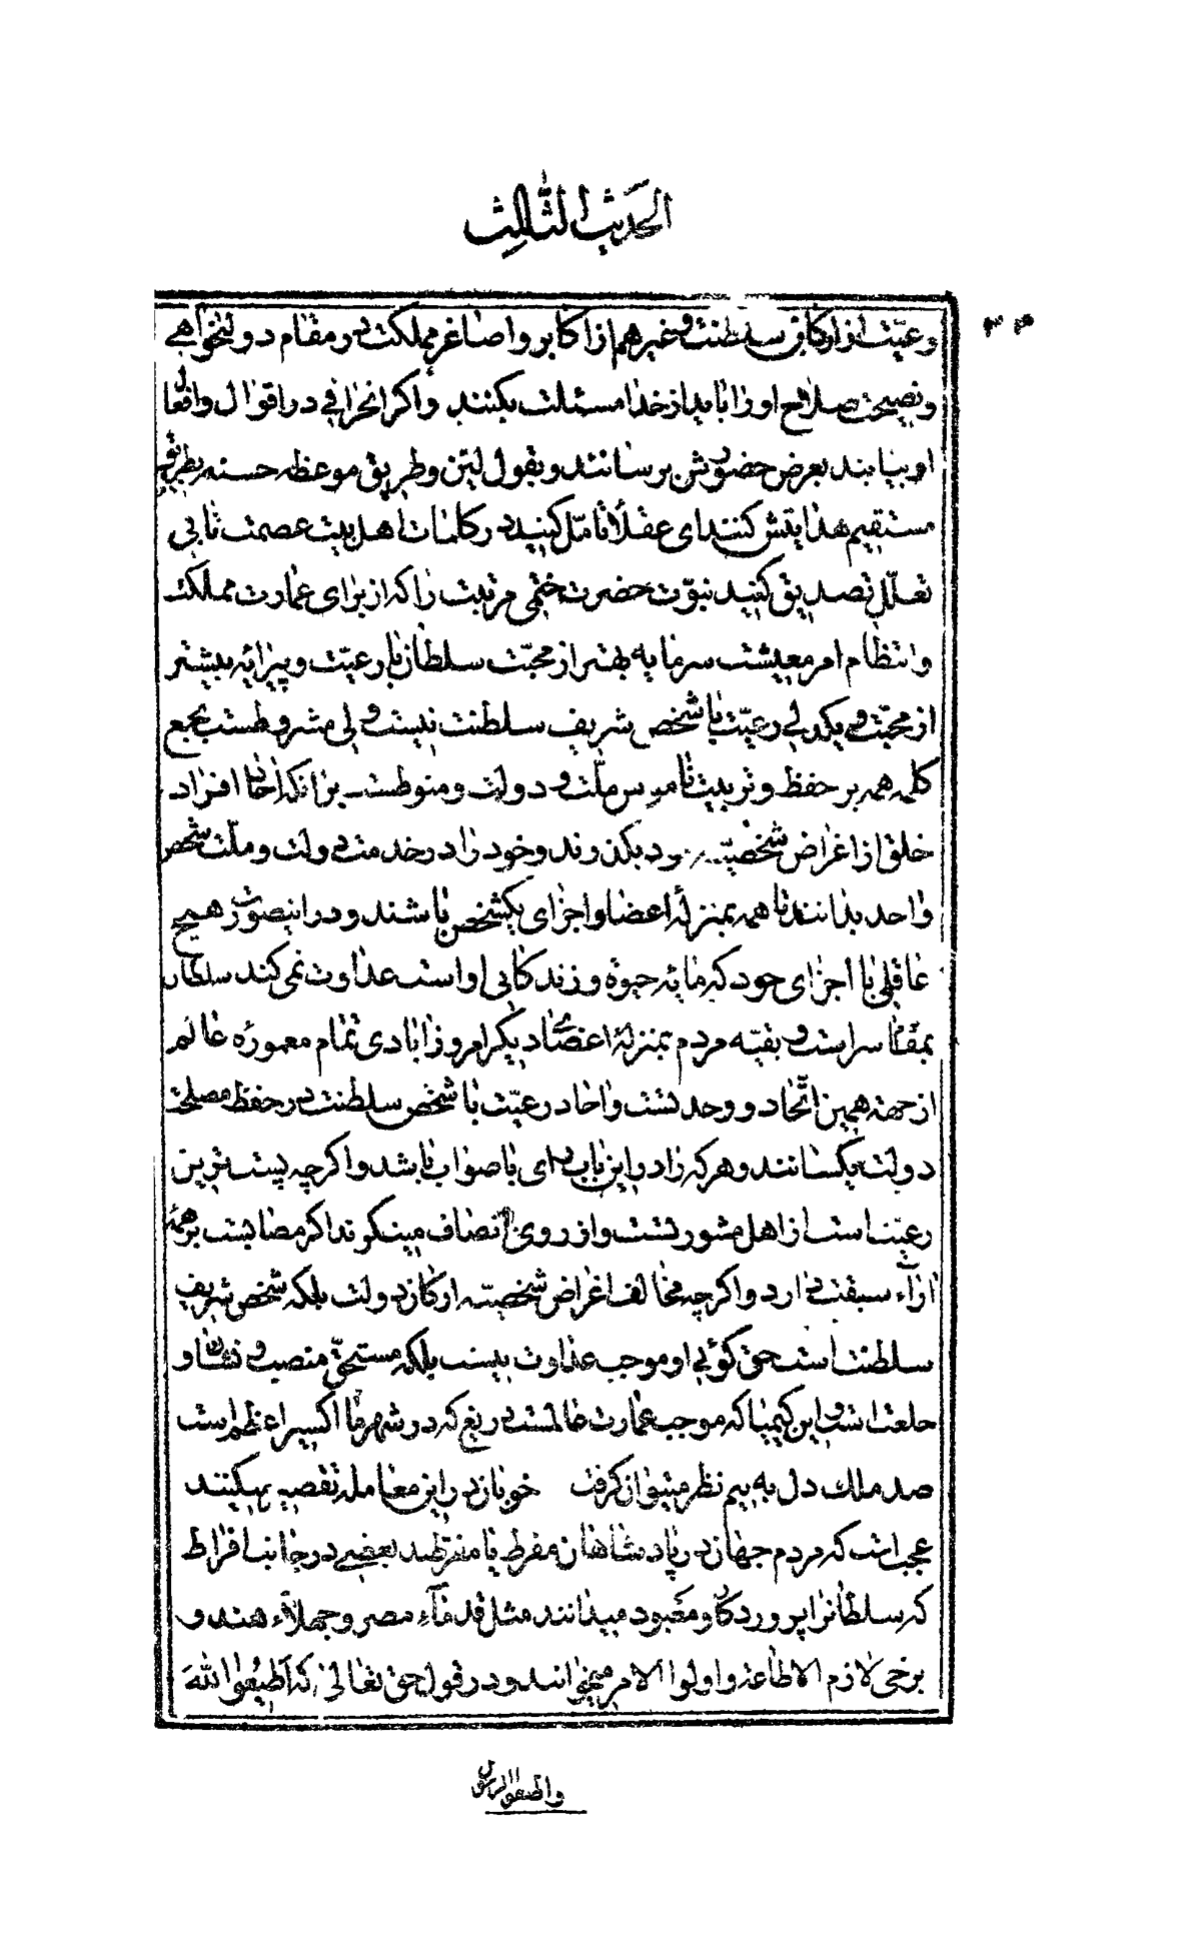 الحدیث الثالث
۳۴
وعیّت از ارکان سلطنت وغیرهم از اکابر واصاغر مملکت در مقام دولتخواهی
ونصیحت صلاح او را باید از خدا مسئلت بکنند واکر انحرافی در اقوال وافعال
او بیابند بعرض حضورش برسانند وبقول لیّن وطریق موعظه حسنه بطریق
مستقیم هدایتش کنند ای عقلا تامّل کنید در کلمات اهل بیت عصمت تا بی
تعلّل تصدیق کنید نبوّت حضرت ختمی مرتبت را که از برای عمارت مملکت
وانتظام امر معیشت سرمایه بهتر از محبّت سلطان با رعیّت وپیرایه بیشتر
از محبّت و یکدلی رعیّت با شخص شریف سلطنت نیست ولی مشروطست بجمع
کلمه همه بر حفظ وتربیت ناموس ملّت و دولت ومنوطست برانکه احاد افراد
خلق از اغراض شخصیّه خود بکذرند وخود را در خدمت دولت وملّت شخص
واحد بدانند تا همه بمنزلهٔ اعضا واجزای یکشخص باشند ودر اینصورت هیچ
عاقلی با اجزای خود که مایه حیوة وزندکانی او است عداوت نمی کند سلطان
بمقام سراست و بقیّه مردم بمنزلهٔ اعضاء دیکر امروز آبادی تمام معموره عالم
از جهة همین اتّحاد و وحدتست واحاد رعیّت با شخص سلطنت در حفظ مصلحت
دولت یکسانند وهر که را در این باب رای با صواب باشد واکرچه پست ترین
رعیّت است از اهل مشورتست واز روی انصاف میکوید اکر مضایست بر همه
اراء سبقت دارد واکرچه مخالف اغراض شخصیّه ارکان دولت بلکه شخص شریف
سلطنت است حق کوئی او موجب عداوت نیست بلکه مستحقّ منصب و نشان و
خلعت است و این کیمیا که موجب عمارت عالمست دریغ که در شهر ما اکسیر اعظم است
صد ملک دل به نیم نظر میتوان کرفت خوبان در این معامله تقصیر میکنند
عجب است که مردم جهان در پادشاهان مفرط یا مفرّطند بعضی در جانب افراط
که سلطانرا پروردکار ومعبود میدانند مثل قدمآء مصر وجهلاء هند و
برخی لازم الاطاعة واولوا الامر میخوانند ودر قول حق تعالی که اَطیعُوا اللهَ
واطیعوا الرسول